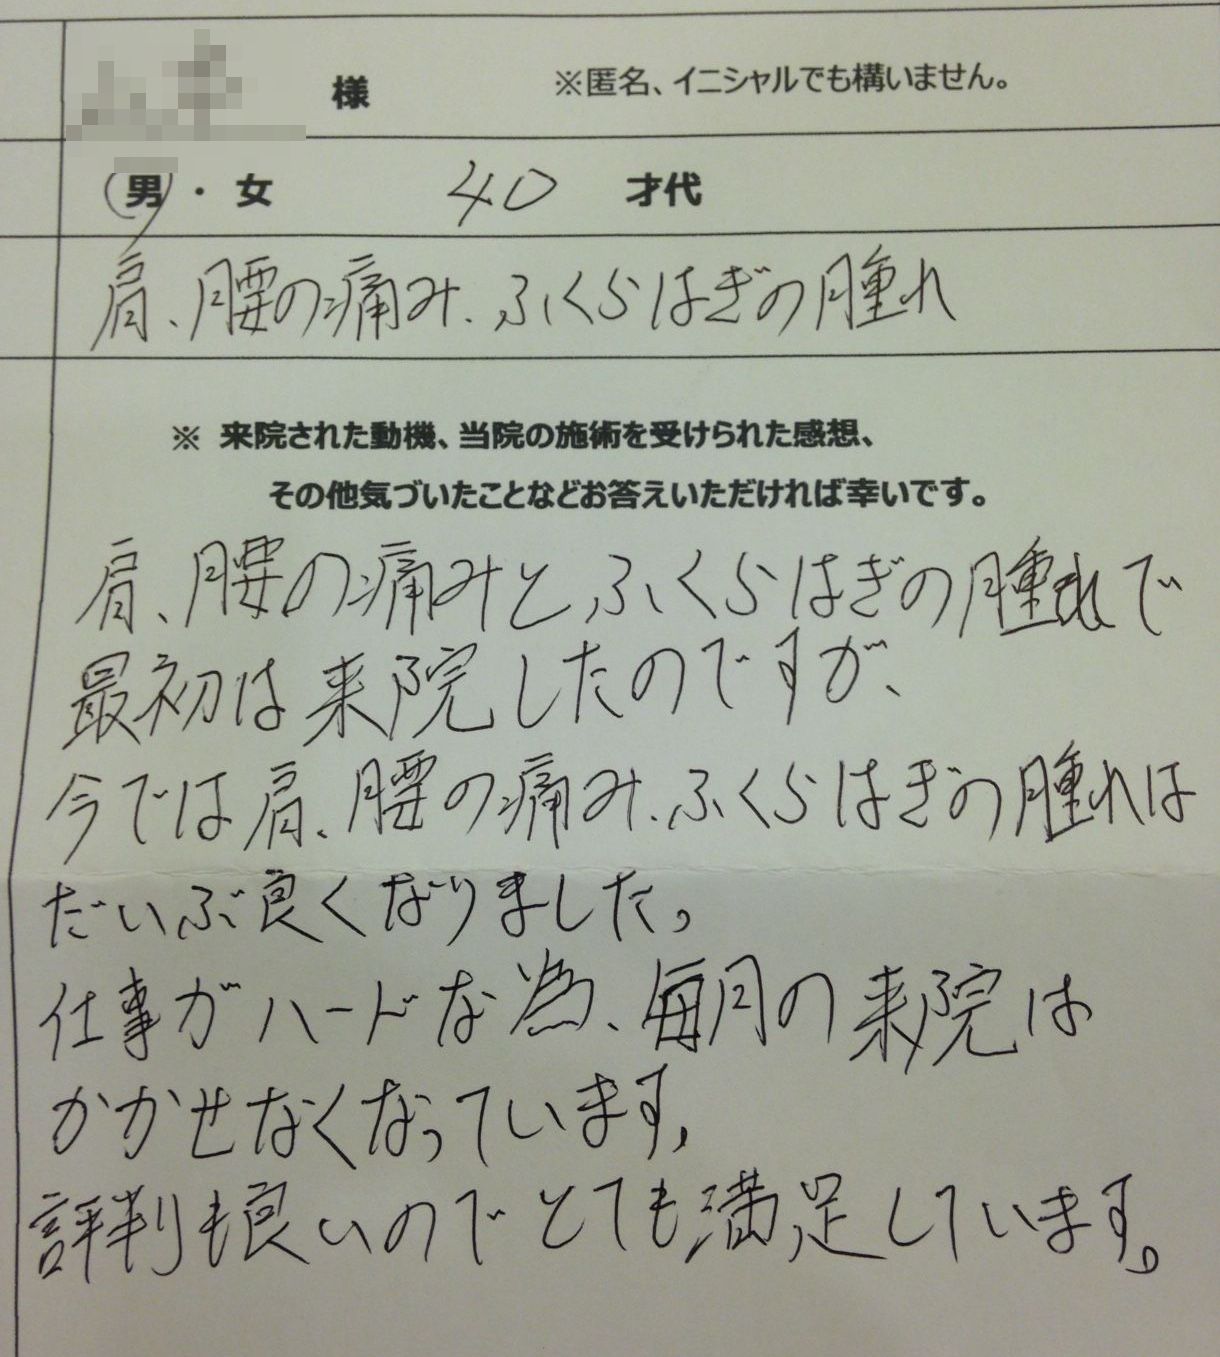 様 ※匿名、イニシャルでも構いません。
男・女 40 才代
肩、腰の痛み、ふくらはぎの腫れ
※ 来院された動機、当院の施術を受けられた感想、
その他気づいたことなどお答えいただければ幸いです。
肩、腰の痛みと、ふくらはぎの腫れで
最初は来院したのですが、
今では肩、腰の痛み、ふくらはぎの腫れは
だいぶ良くなりました。
仕事がハードな為、毎月の来院は
かかせなくなっています。
評判も良いのでとても満足しています。